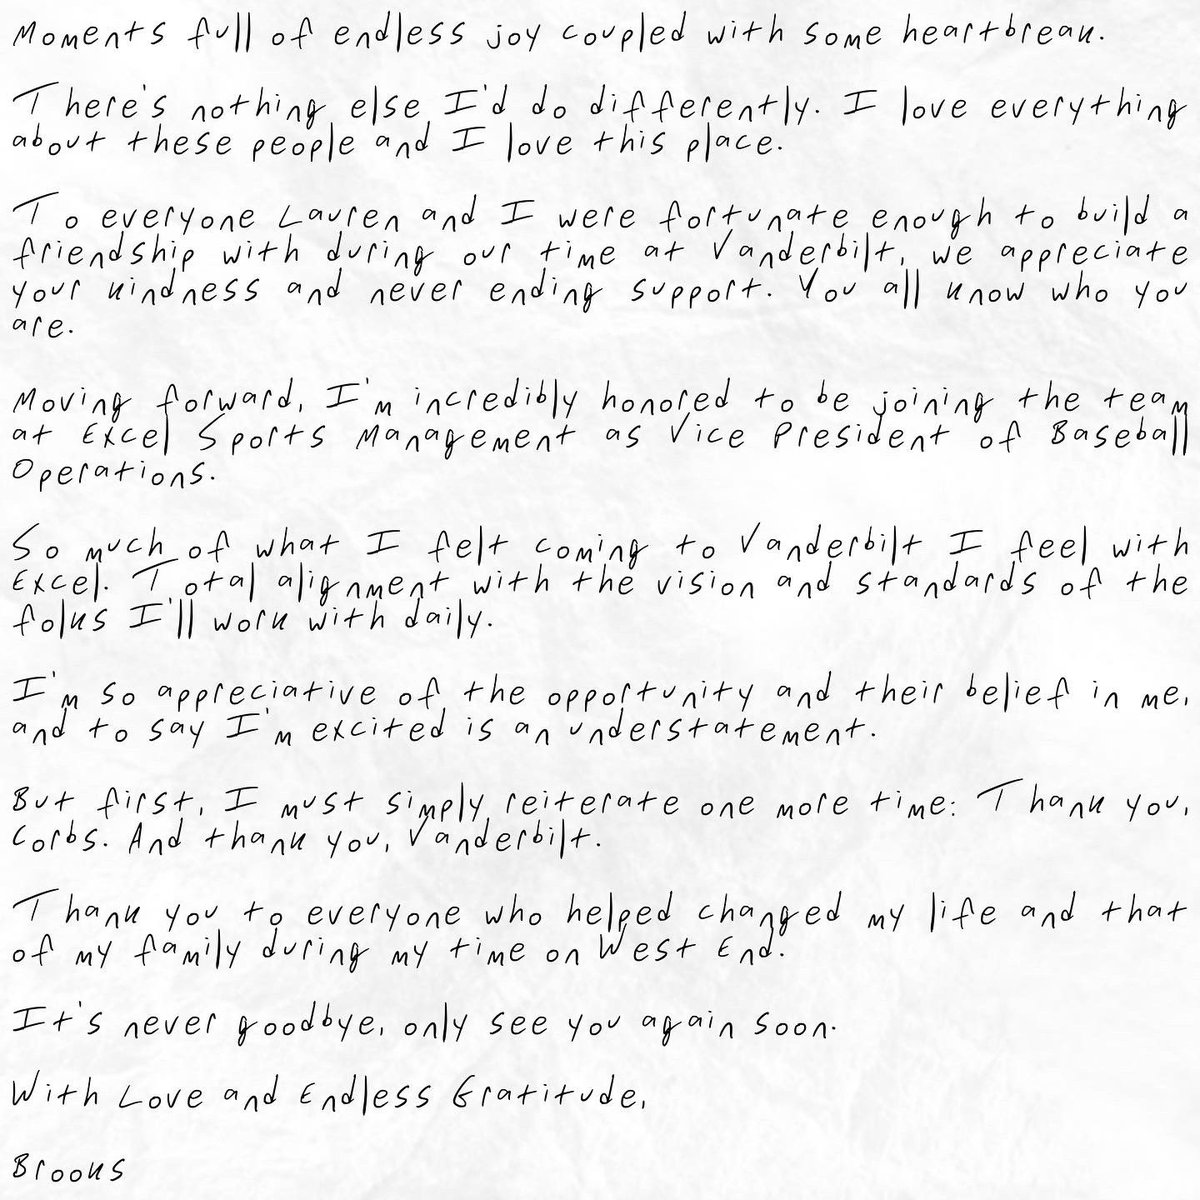 Moments full of endless joy coupled with some heartbreak.
There's nothing else I'd do differently. I love everything
about these people and I love this place.
To everyone Lauren and I were fortunate enough to build a
friendship with during our time at Vanderbilt, we appreciate
your kindness and never ending support. You all know who you
are.
Moving forward, I'm incredibly honored to be joining the team
at Excel Sports Management as Vice President of Baseball
Operations.
So much of what I felt coming to Vanderbilt I feel with
Excel. Total alignment with the vision and standards of the
folks I'll work with daily.
I'm so appreciative of the opportunity and their belief in me,
and to say I'm excited is an understatement.
But first, I must simply reiterate one more time: Thank you,
Corbs. And thank you, Vanderbilt.
Thank you to everyone who helped changed my life and that
of my family during my time on West End.
It's never goodbye, only see you again soon.
With Love and Endless Gratitude,
Brooks